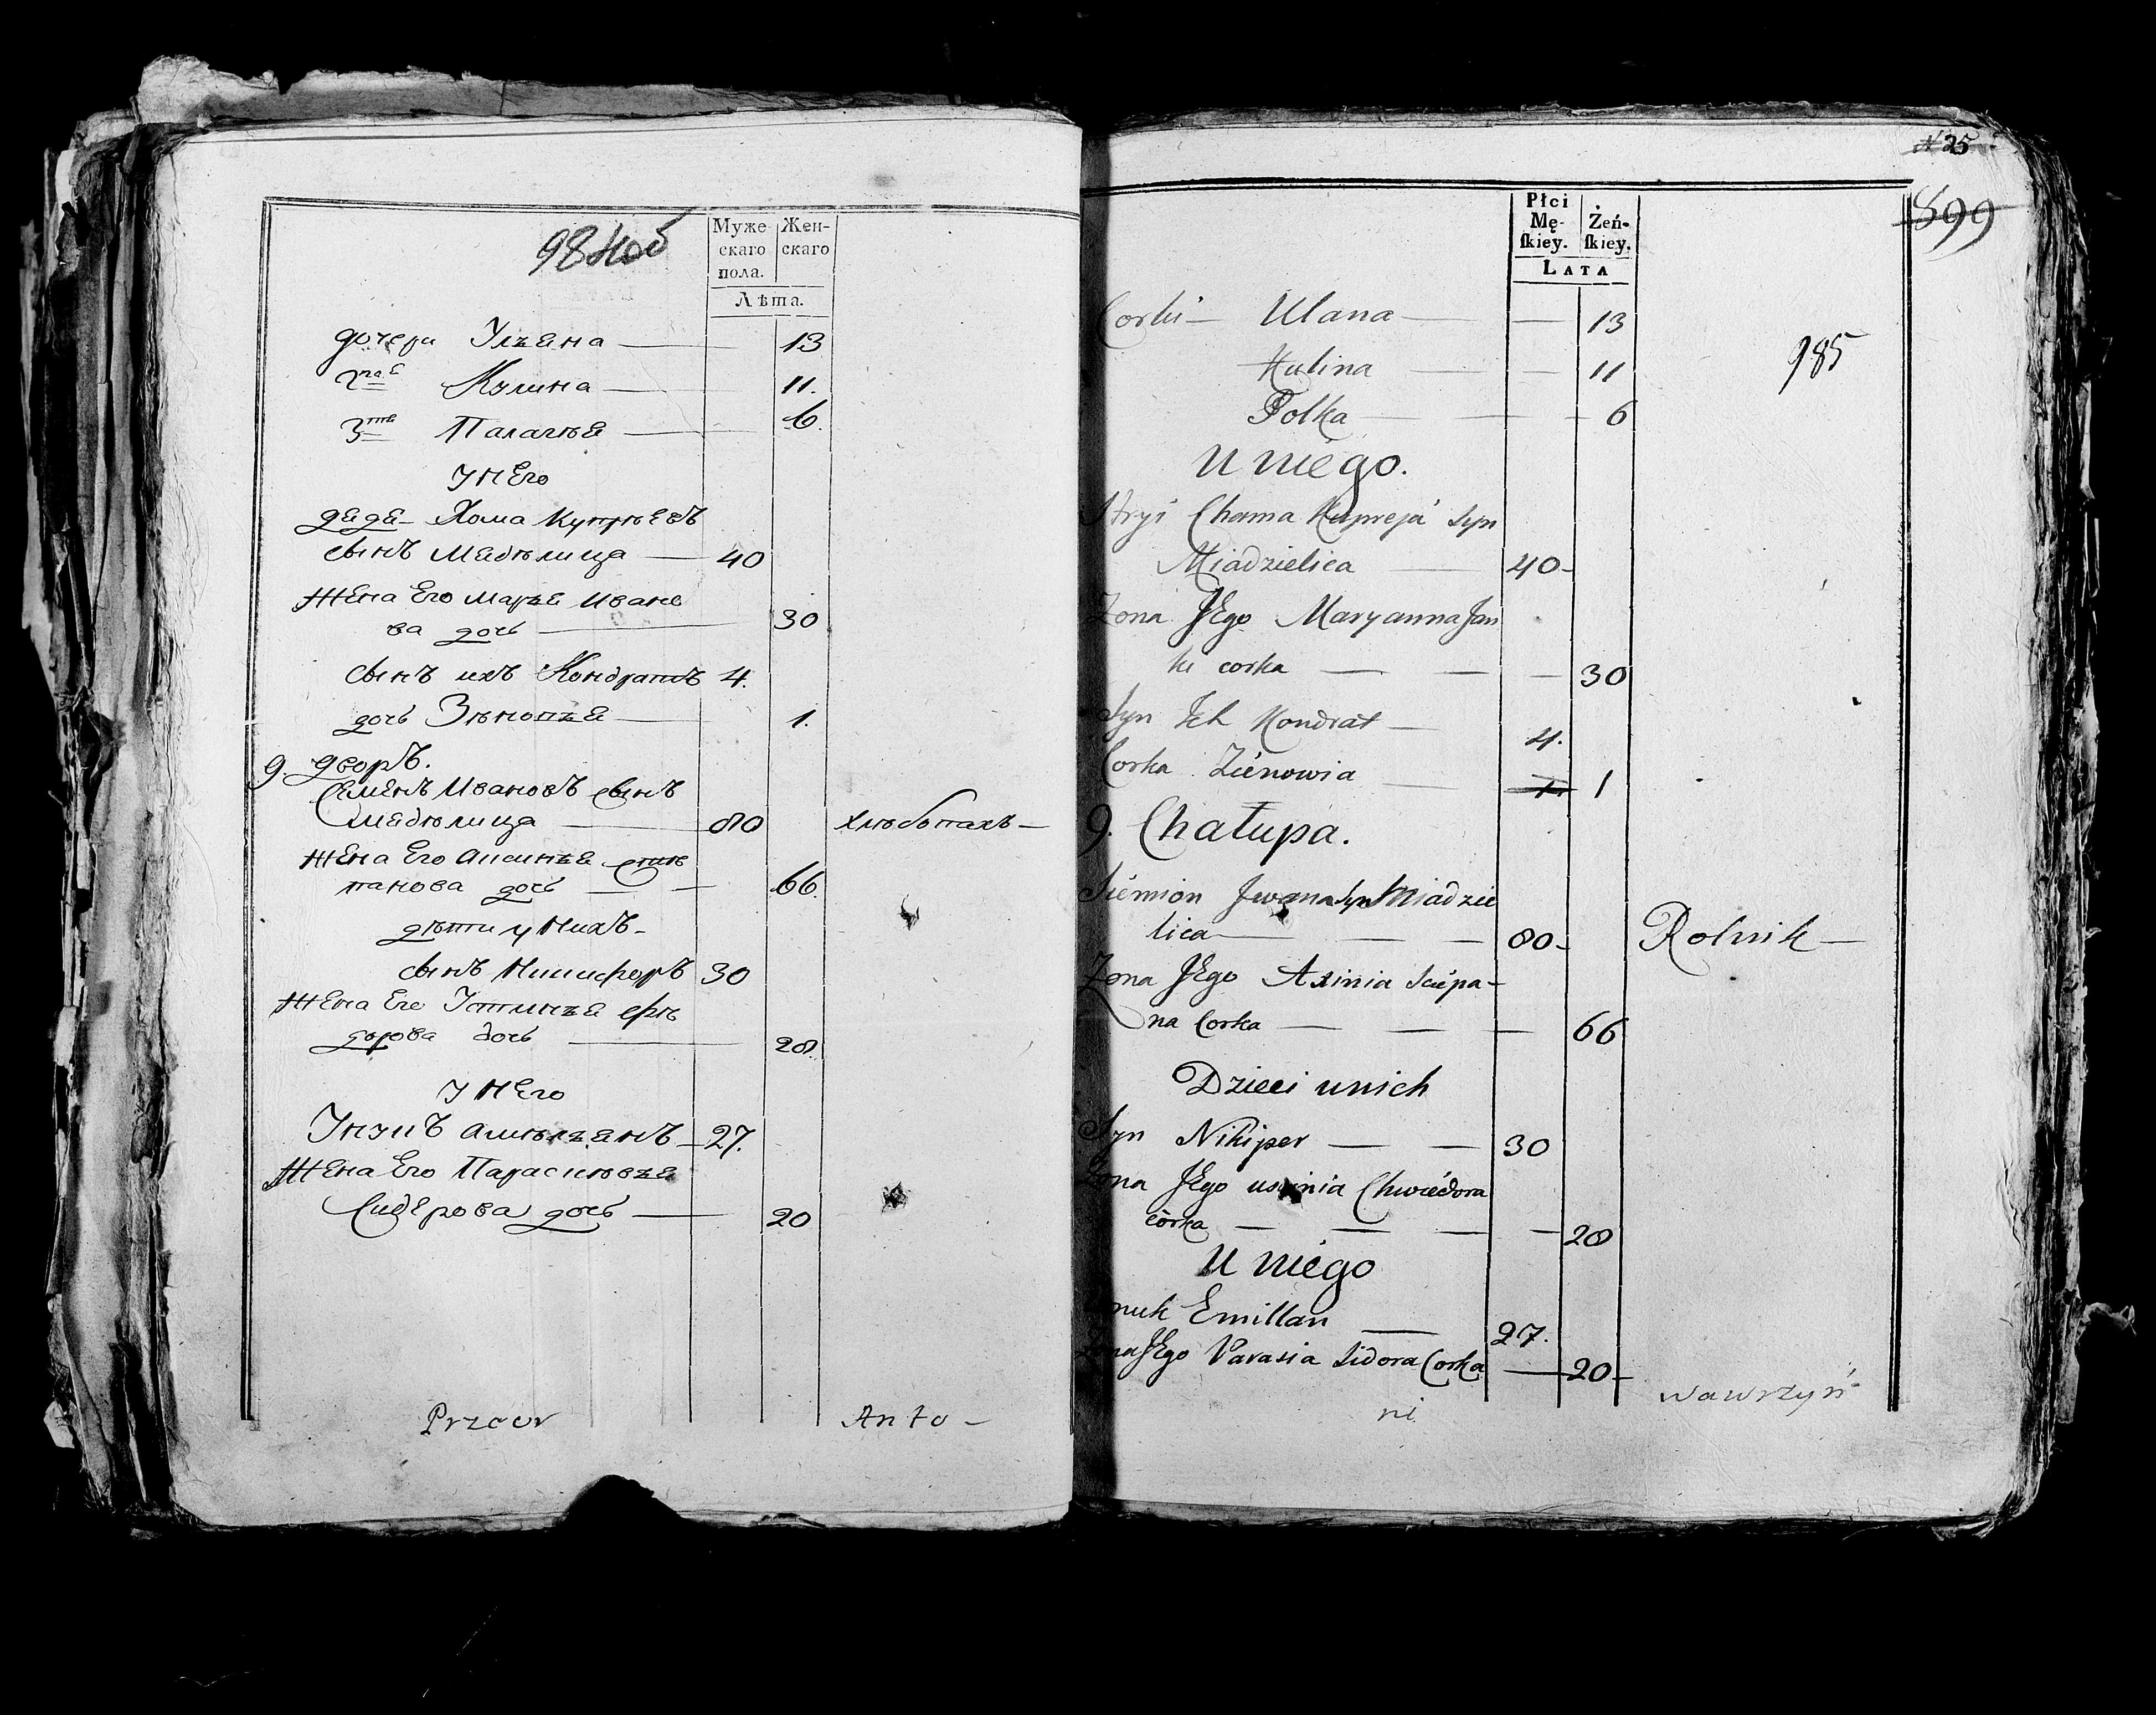 984об
Муже- Жен-
скаго скаго
пола.
Лѣта.
дочери Ульяна — 13
2ая Кулина — 11.
3тя Палагѣя — 6.
У Него
дядя - Хома Купрѣевъ
сынъ Мядѣлица — 40
Жена Его Марья Ивано
ва дочь — 30
сынъ ихъ Кондратъ 4.
дочь Зѣновья — 1.
9. дворъ.
Семенъ Ивановъ сынъ
Мядѣлица — 80 Хлѣбопахъ —
Жена Его Аксинья Стѣ
панова дочь — 66.
дѣти у Нихъ -
сынъ Никифоръ 30
Жена Его Устинья Фѣ
дорова дочь — 28.
У Него
Унукъ Амѣльянъ — 27.
Жена Его Парасковья
Сидорова дочь — 20
Przcor Anto —
N 25
899
Płci
Mę- Żeń-
skiey. skiey.
LATA
985
Corki — Ulana — — 13
Kulina — — 11
Polka — — 6
U niego.
Stryi Chama Kupreja Syn
Miadzielica — 40 -
Zona JEgo Maryanna Jan
ki corka — — — 30
Syn Ich Kondrat — 4.
Corka Zienowia — 1 1
9. Chałupa.
Siemion Jwana Syn Miadzie
lica — — — 80 - Rolnik —
Zona JEgo Axinia Sciepa -
na Corka — — — 66
Dzieci unich
Syn Nikiper — — 30
Zona JEgo ustinia Chwiedora
córka — — — — 28
U niego
Wnuk Emillan — 27.
Zona JEgo Parasia Sidora Corka — 20 -
ni Wawrzyń-